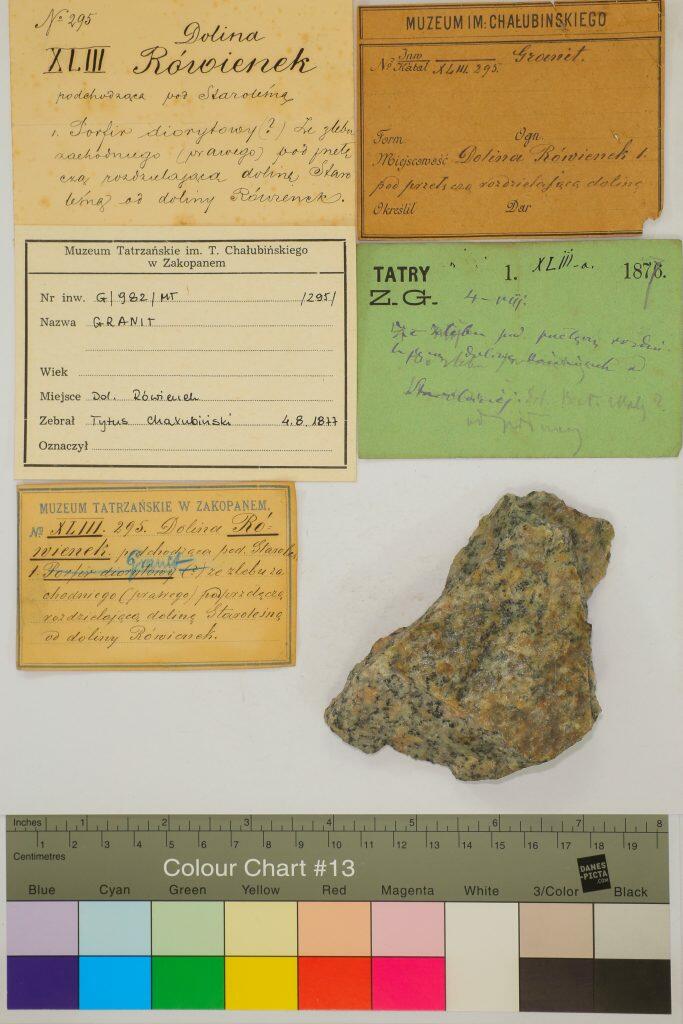 No 295
XLIII Dolina
Rówienek
podchodząca pod Staroleśną
1. Porfir diorytowy (?) Ze żlebu
zachodniego (prawego) pod przełę
czą rozdzielającą dolinę Staro
leśną od doliny Rówienek.
MUZEUM IM: CHAŁUBIŃSKIEGO
No Inw Katal XLIII. 295. Granit.
Form. Ogn.
Miejscowość Dolina Rówienek 1.
pod przełęczą rozdzielającą dolinę
Określił Dar
Muzeum Tatrzańskie im. T. Chałubińskiego
w Zakopanem
Nr inw. G/982/MT /295/
Nazwa GRANIT
Wiek
Miejsce Dol. Rówienek
Zebrał Tytus Chałubiński 4.8.1877
Oznaczył
TATRY 1. XLIII-a. 187
Z.G. 4-VIII.
Ze żlebu pod
Staroleśnej.
od północy
MUZEUM TATRZAŃSKIE W ZAKOPANEM.
No XLIII. 295. Dolina Ró-
wienek podchodząca pod Staroleś.
Granit
1. Porfir diorytowy (?) ze żlebu za
chodniego (prawego) pod przełęczą
rozdzielającą dolinę Staroleśną
od doliny Rówienek.
Inches 1 2 3 4 5 6 7 8
1 2 3 4 5 6 7 8 9 10 11 12 13 14 15 16 17 18 19
Centimetres
Colour Chart #13
DANES
-PICTA
.COM
Blue Cyan Green Yellow Red Magenta White 3/Color Black